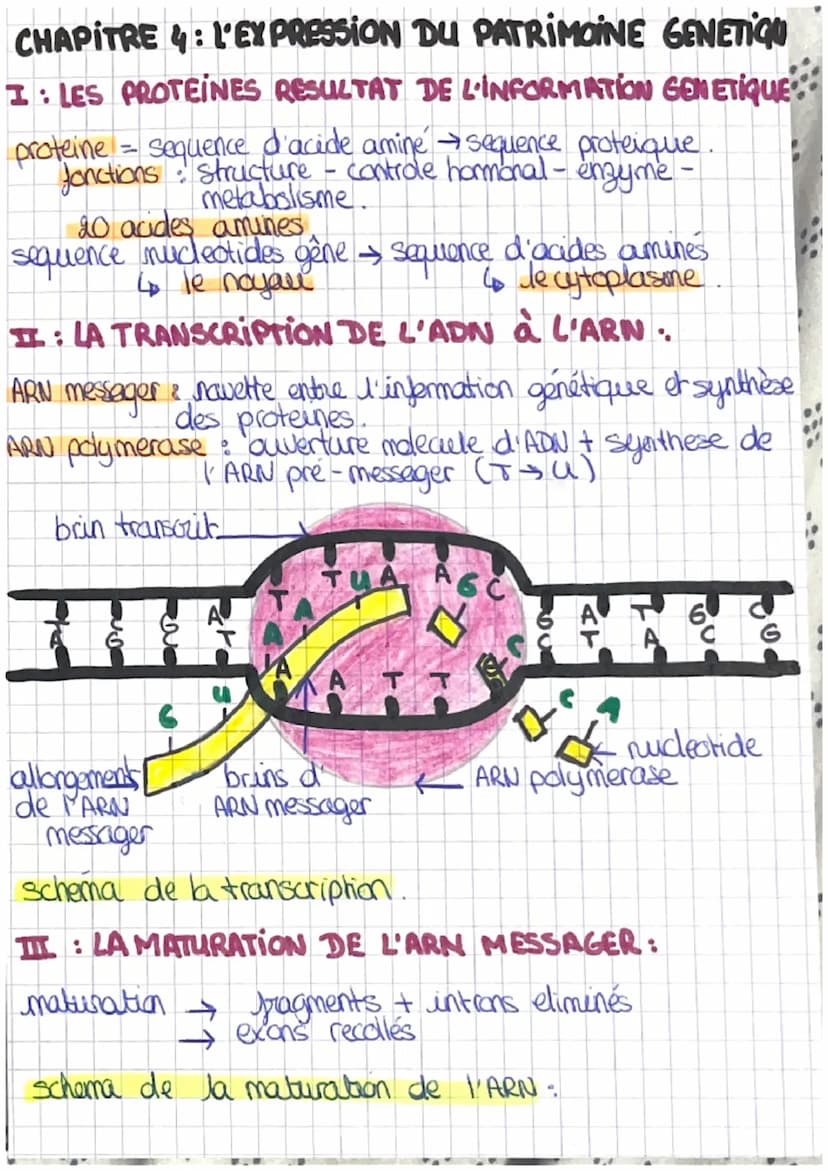 CHAPITRE 4 : L'EXPRESSION DU PATRIMOINE GENETIQU
I : LES PROTEINES RESULTAT DE L'INFORMATION GENETIQUE
proteine = sequence d'acide aminé → sequence proteique.
fonctions : structure - controle hormonal - enzyme -
metabolisme.
20 acides amines
sequence nucleotides gène → sequence d'acides aminés
↳ le noyau ↳ le cytoplasme.
II : LA TRANSCRIPTION DE L'ADN à L'ARN :
ARN messager : navette entre l'information génétique et synthèse
des proteines.
ARN polymerase : ouverture molecule d'ADN + synthese de
l'ARN pré-messager (T → U)
brin transcrit
T T A A C
A A U G
T C C A G A T G C
A G G T C T A C G
A A T T G C
G U
C A
nucleotide
allongement brins d' ← ARN polymerase
de l'ARN ARN messager
messager
schema de la transcription.
III : LA MATURATION DE L'ARN MESSAGER :
maturation → fragments + introns eliminés
→ exons recollés
schema de la maturation de l'ARN :